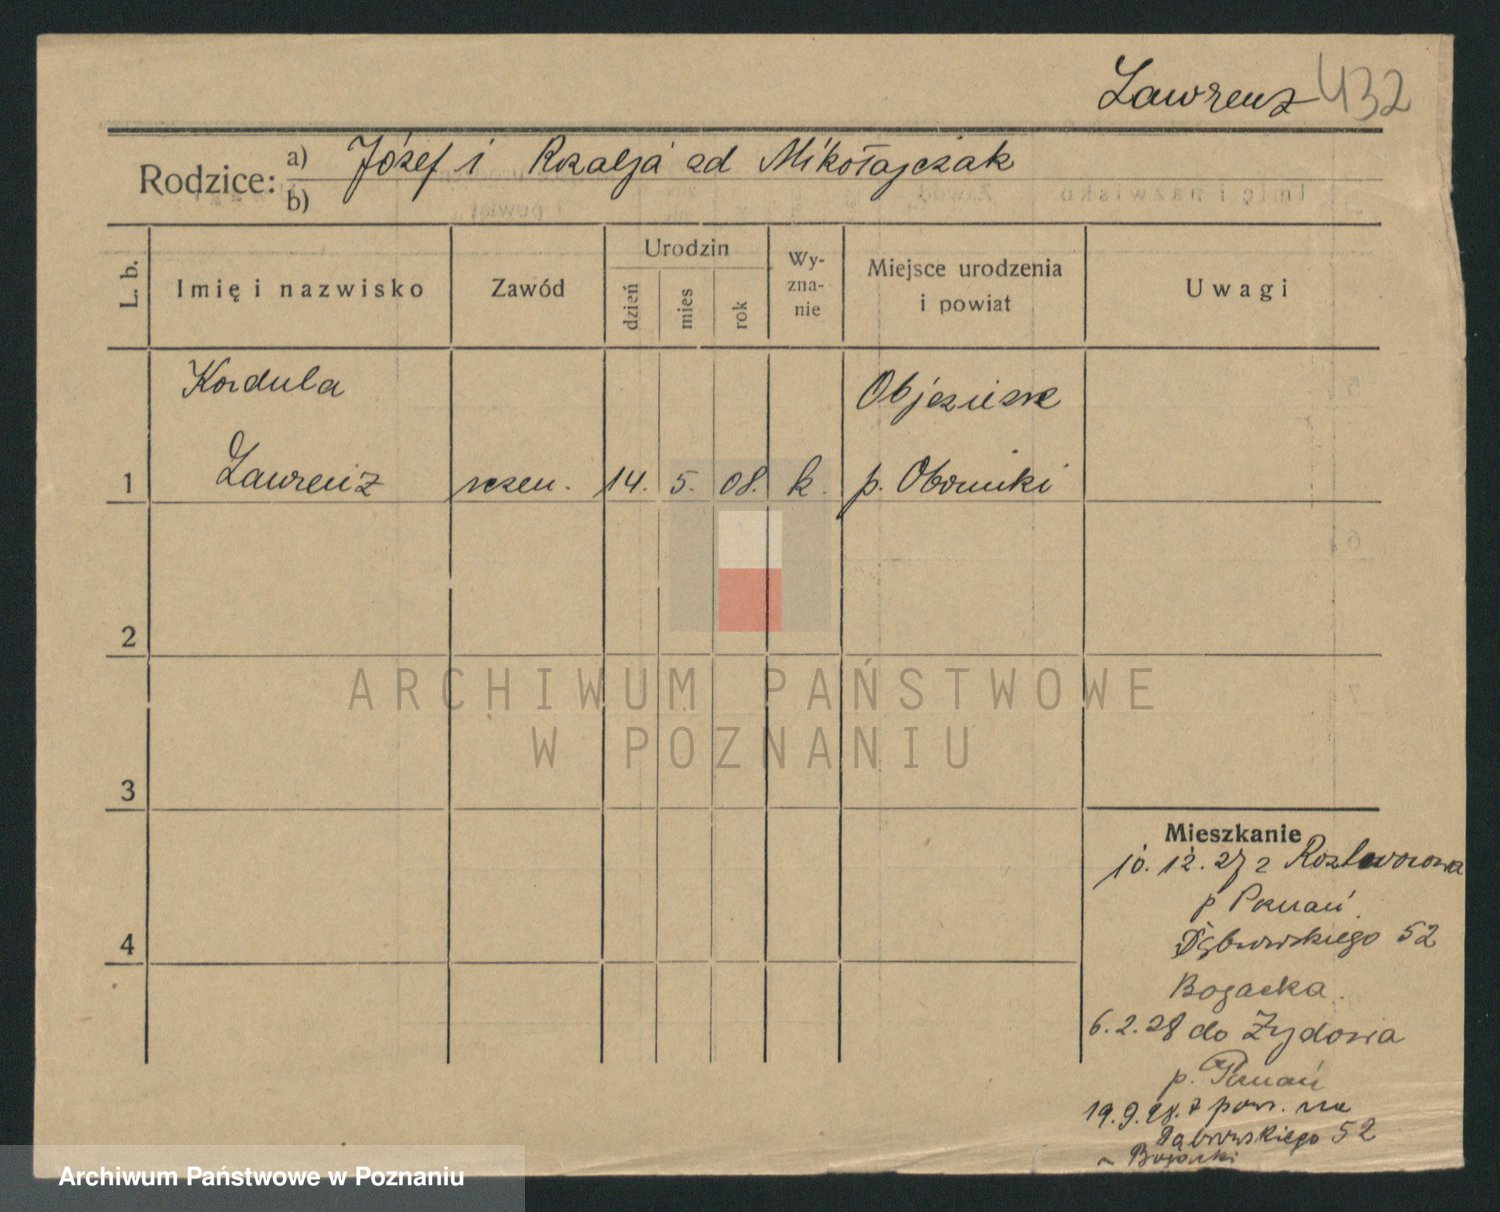 Lawrenz 432
Rodzice: a) Józef i Rozalja zd Mikołajczak
b)
L. b.
Imię i nazwisko
Zawód
Urodzin
dzień
mies
rok
Wy-
zna-
nie
Miejsce urodzenia
i powiat
Uwagi
Kordula
Objezierze
1 Lawrenz 14. 5. 08. k. p. Oborniki
2
ARCHIWUM PAŃSTWOWE
W POZNANIU
3
Mieszkanie
10. 12. 27 z
p Poznań
Dąbrowskiego 52
Bogacka.
4
6. 2. 28 do Żydowa
p. Poznań
19. 9. 28. z pow. na
Dąbrowskiego 52
Archiwum Państwowe w Poznaniu